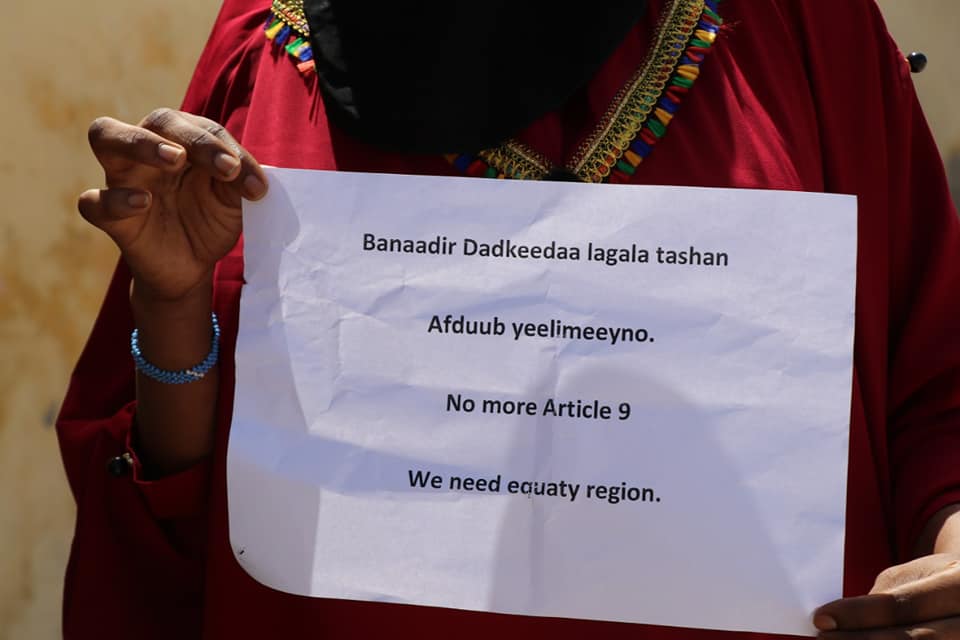 Banaadir Dadkeedaa lagala tashan
Afduub yeelimeeyno.
No more Article 9
We need equaty region.